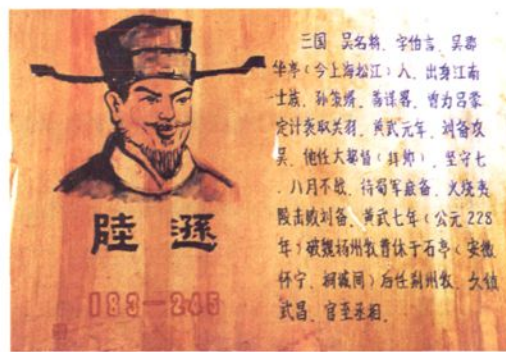 陸遜
183—245
三国 吴名将、字伯言、吴郡
华亭(今上海松江)人、出身江南
士族、孙策婿、善谋略、曾为吕蒙
定计袭取关羽、黄武元年、刘备攻
吴、他任大都督(拜帅)、坚守七
、八月不战、待蜀军疲备、火烧夷
陵击败刘备、黄武七年(公元228
年)破魏扬州牧曹休于石亭(安徽
怀宁、桐城间)后任荆州牧、久镇
武昌、官至丞相、